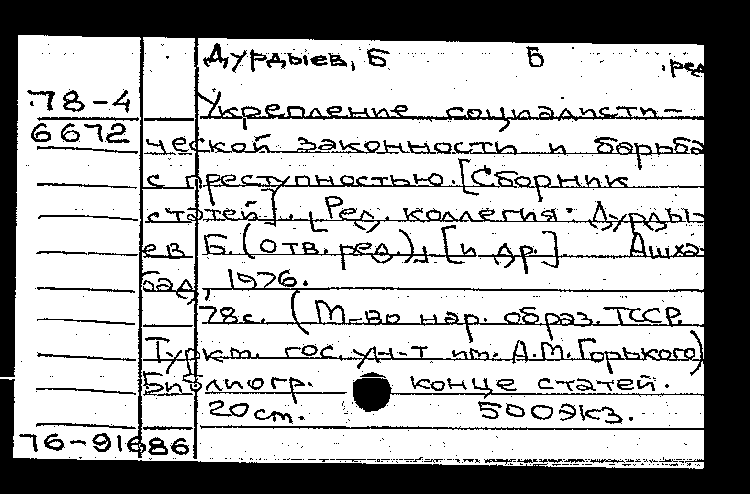 Дурдыев, Б Б .ред
78-4 Укрепление социалисти-
6672 ческой законности и борьба
с преступностью. [Сборник
статей]. [Ред. коллегия: Дурды-
ев Б. (отв. ред.)] [и др.]. Ашха-
бад, 1976.
78с. (М-во нар. образ. ТССР.
Туркм. гос. ун-т им. А.М. Горького)
Библиогр. конце статей.
20 см. 500экз.
76-91686